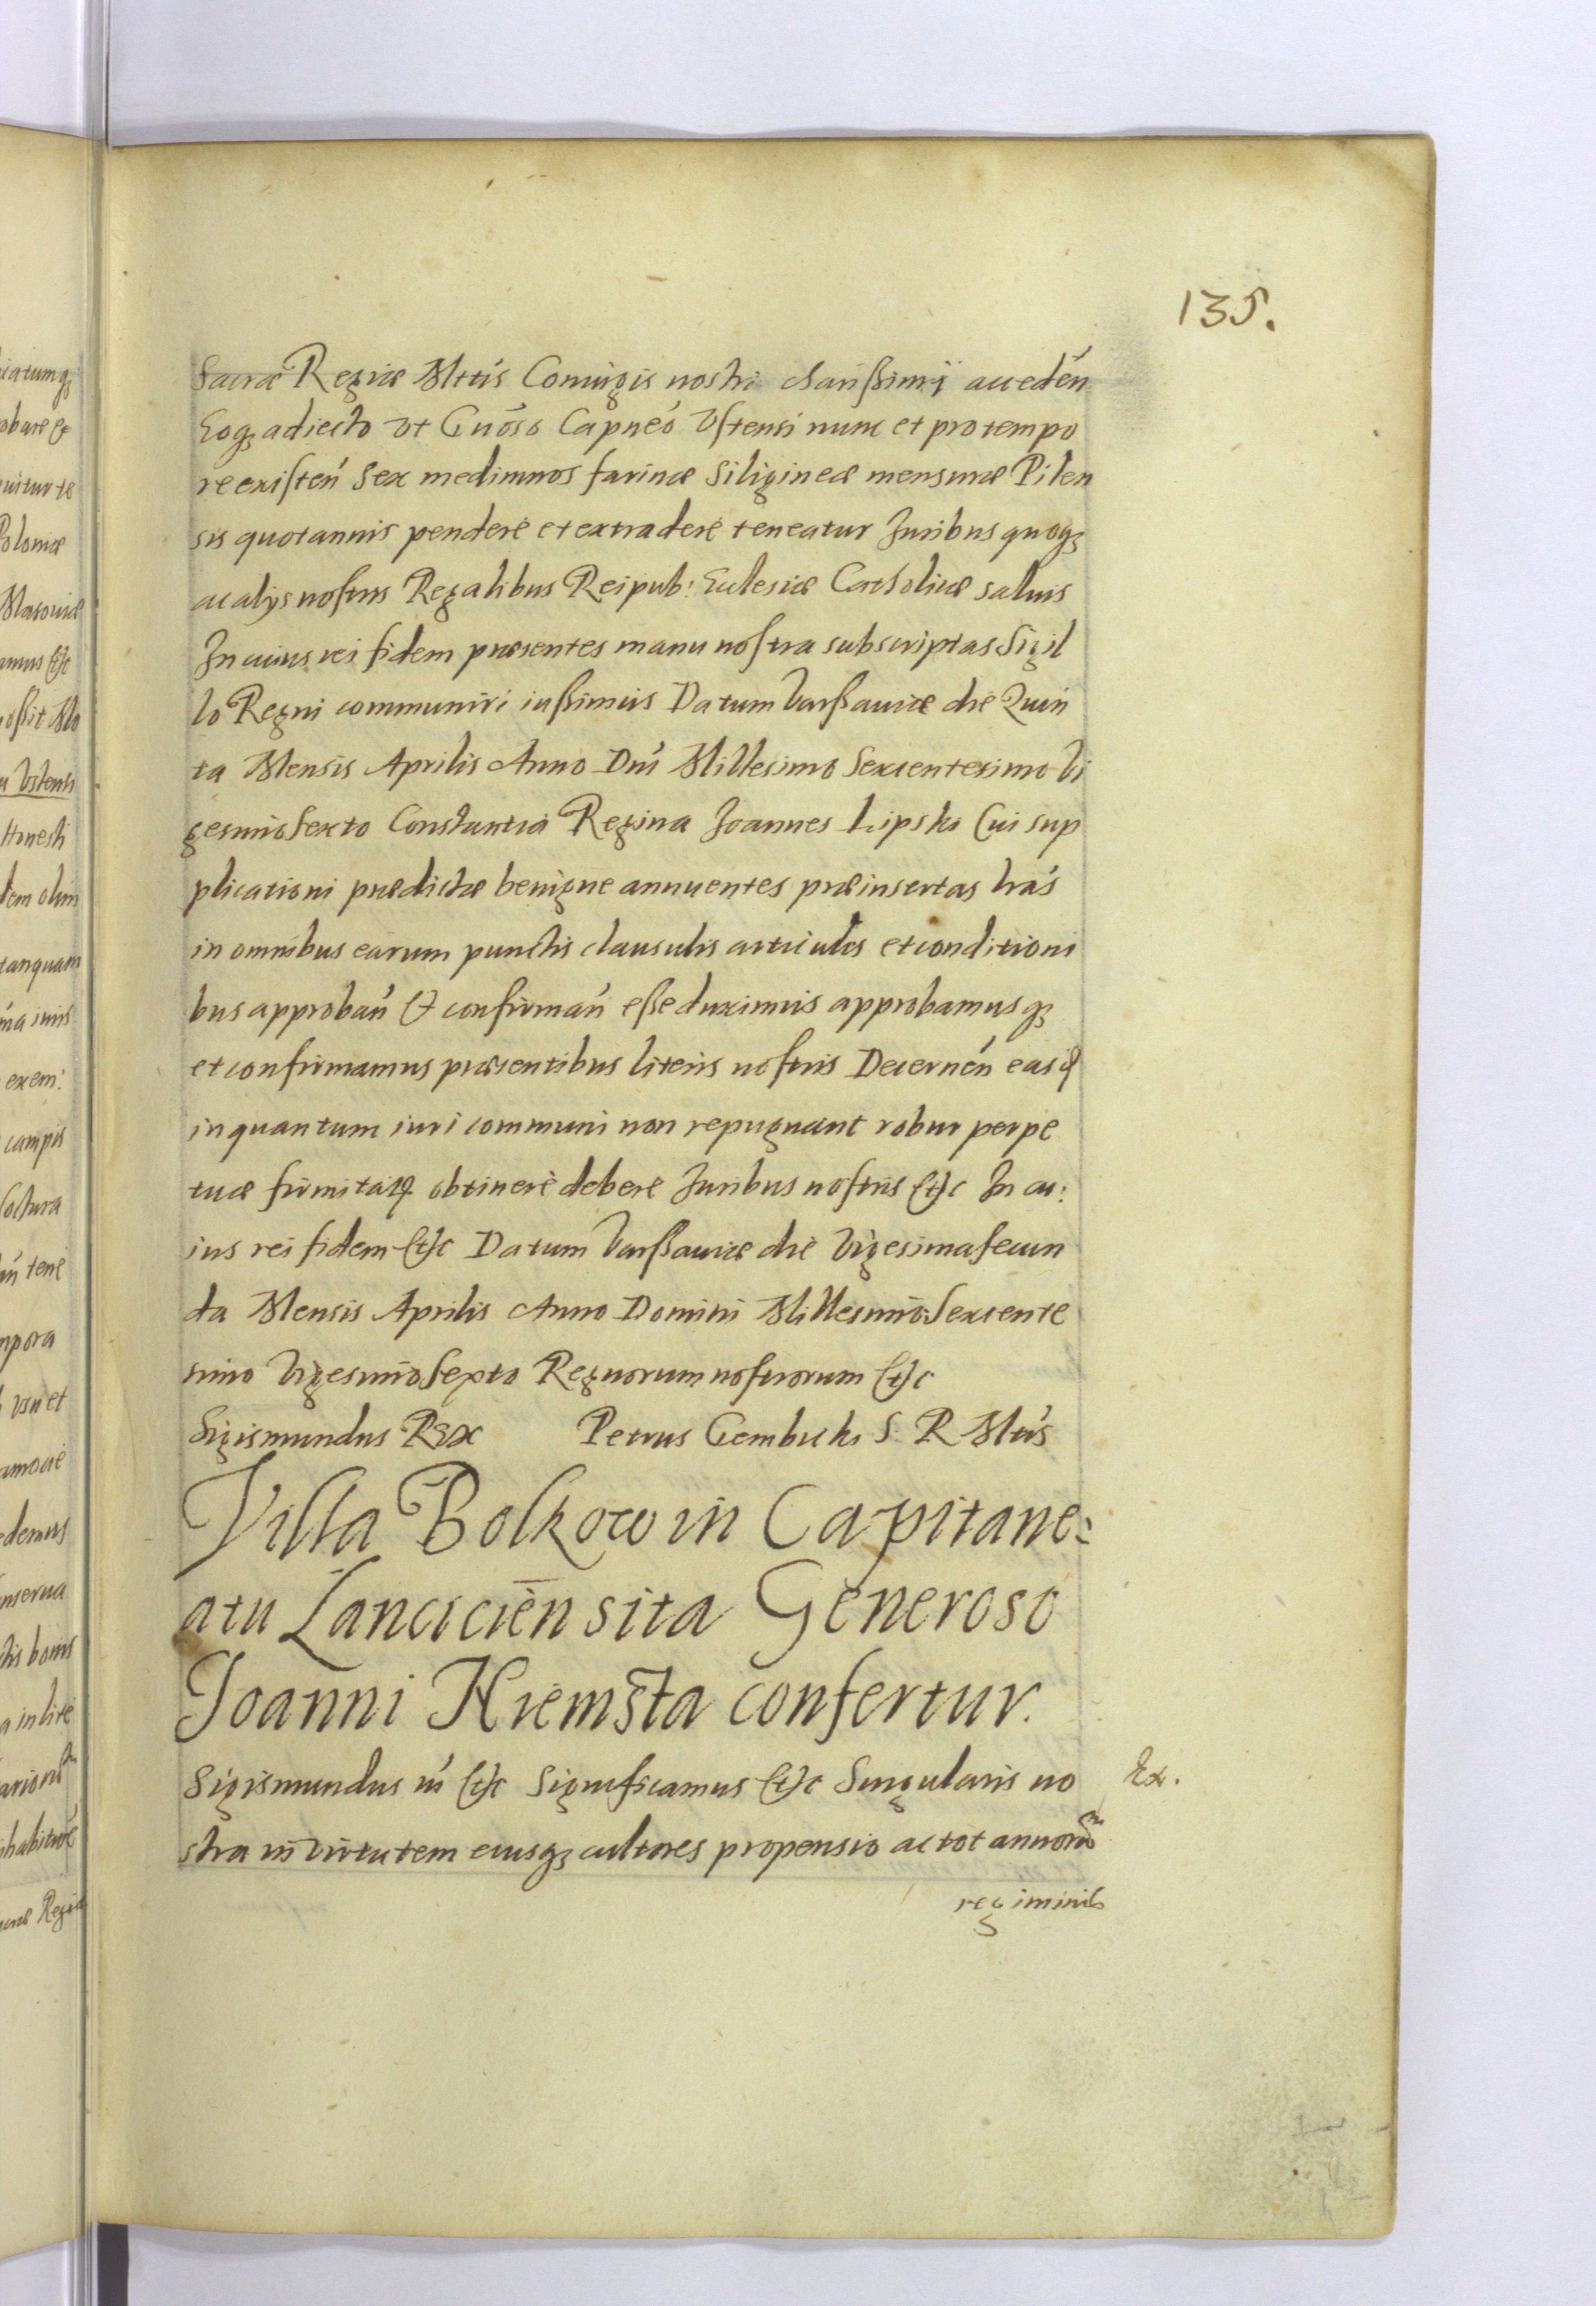 135.
Sacræ Regiæ Mttis Coniugis nostri charißimi acceden̄
Eoq₃ adiecto vt Gnōso Capneo Vstensi nunc et pro tempo
re existen̄ Sex medimnos farinæ Siligineæ mensuræ Pilen
sis quotannis pendere et extradere teneatur Juribus quoq₃
ac alijs nostris Regalibus Reipub: Ecclesiæ Catholicæ saluis
In cuius rei fidem præsentes manu nostra subscriptas Sigil
lo Regni communiri iußimus Datum Varßauiæ die Quin
ta Mensis Aprilis Anno Dnī Millesimo Sexcentesimo Vi
gesimo Sexto Constantia Regina Joannes Lipski Cui sup
plicationi prædictæ benigne annuentes præinsertas lrās
in omnibus earum punctis clausulis articulis et conditioni
bus approban̄ et confirman̄ eße duximus approbamusq₃
et confirmamus præsentibus literis nostris Decernen̄ easq
in quantum iuri communi non repugnant robur perpe
tuæ firmitatis obtinere debere Juribus nostris etc In cu:
ius rei fidem etc Datum Varßauiæ die Vigesima secun
da Mensis Aprilis Anno Domini Millesimo Sexcente
simo Vigesimo Sexto Regnorum nostrorum etc
Sigismundus Rex Petrus Gembicki S. R. Mtis
Villa Bolkow in Capitane:
atu Lancicien̄ sita Generoso
Joanni Hiemsta confertur.
Sigismundus iii etc Significamus etc Singularis no
Ex.
stra in virtutem eiusq₃ cultores propensio ac tot annorū
regiminis
iatumq₃
obare et
uitur te
Poloniæ
Masouiæ
amus etc
oßit Mo
u Vstensi
Honesti
dem olim
tanquam
exem:
campis
Coctura
npora
vsu et
amoue
edemus
nserua
ctis bonis
a in lite
habiture